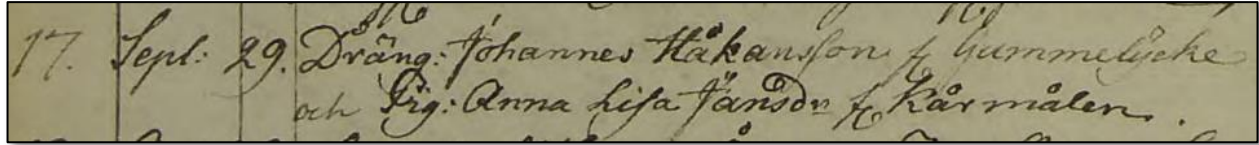 17. Sept: 29. Dräng: Johannes Håkansson fr Gummelycke
och Pig: Anna Lisa Jansdr fr Kårmålen.